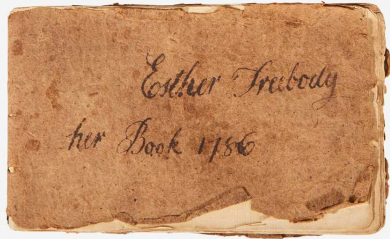 Esther Freebody
her Book 1786